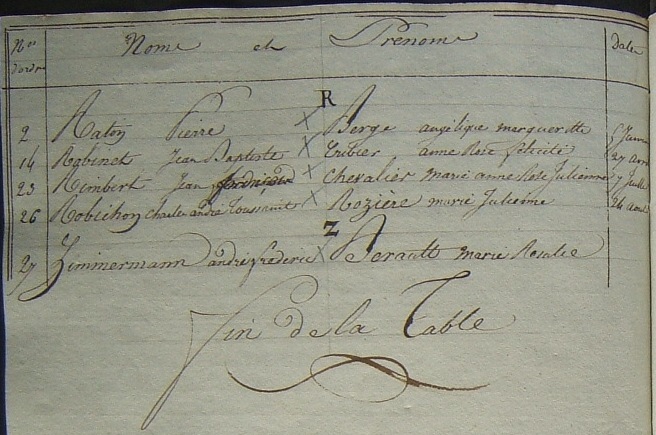 Nos d'ordre Noms et Prénoms Date
R
2 Raton Pierre × Berge angélique marguerette 5
14 Rabinet Jean Baptiste × Tribier anne Rose félicité 27 avril
23 Rimbert Jean × Chevalier marie anne Rose Julienne 7
26 Robichon Charles andré Toussaint × Rozière marie Julienne 24 aout
Z
27 Zimmermann andré frédéric × marie Rosalie
Fin de la Table